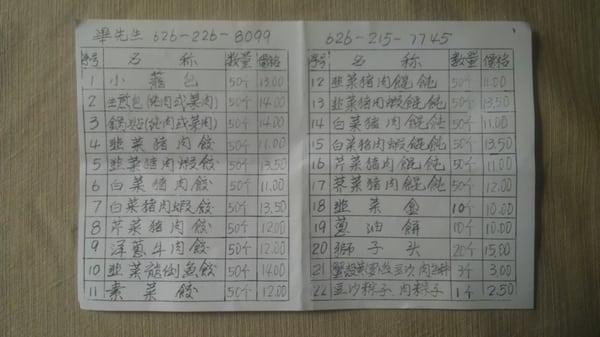 畢先生 626-226-8099
序号 名称 数量 價格
1 小籠包 50个 13.00
2 生煎包(純肉或菜肉) 50个 14.00
3 鍋貼(純肉或菜肉) 50个 14.00
4 韭菜猪肉餃 50个 11.00
5 韭菜猪肉蝦餃 50个 13.50
6 白菜猪肉餃 50个 11.00
7 白菜猪肉蝦餃 50个 13.50
8 芹菜猪肉餃 50个 12.00
9 洋蔥牛肉餃 50个 12.00
10 韭菜龍俐魚餃 50个 14.00
11 素菜餃 50个 12.00
626-215-7745
序号 名称 数量 價格
12 韭菜猪肉餛飩 50个 11.00
13 韭菜猪肉蝦餛飩 50个 13.50
14 白菜猪肉餛飩 50个 11.00
15 白菜猪肉蝦餛飩 50个 13.50
16 芹菜猪肉餛飩 50个 11.00
17 薺菜猪肉餛飩 50个 12.00
18 韭菜盒 10个 10.00
19 蔥油餅 10个 10.00
20 獅子头 20个 15.00
21 蟹殼黃 豆沙 肉 3个 3.00
22 豆沙粽子、肉粽子 1个 2.50